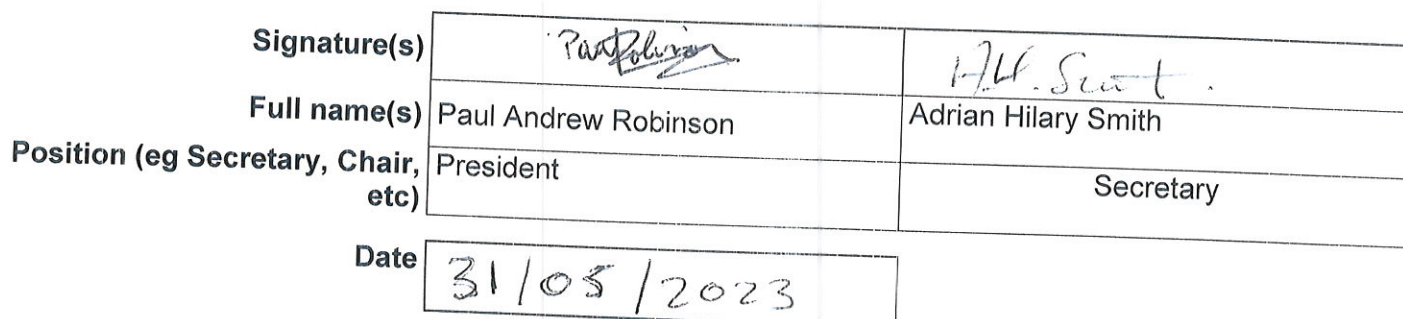 Signature(s) Paul Robinson A.H. Smit.
Full name(s) Paul Andrew Robinson Adrian Hilary Smith
Position (eg Secretary, Chair, President Secretary
etc)
Date 31/05/2023